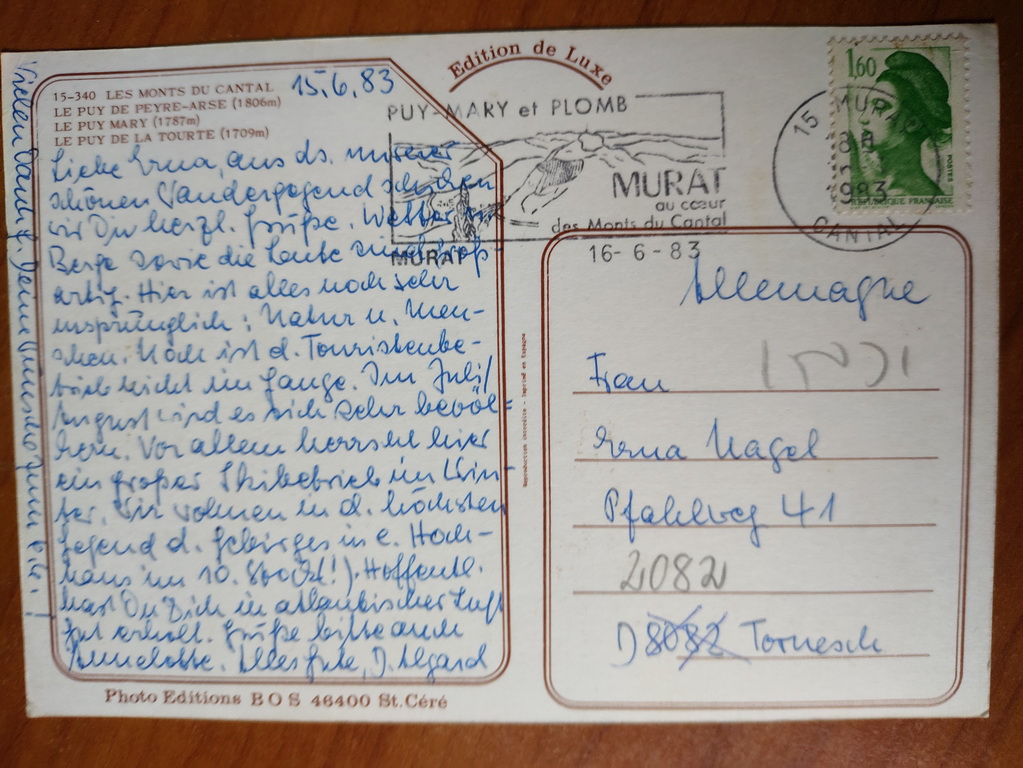 Edition de Luxe
15-340 LES MONTS DU CANTAL
LE PUY DE PEYRE-ARSE (1806m)
LE PUY MARY (1787m)
LE PUY DE LA TOURTE (1709m)
15.6.83
Liebe Erna, aus ds. unserer
schönen Wandergegend schicken
wir Dir herzl. Grüße. Wetter u.
Berge sowie die Leute sind groß-
artig. Hier ist alles noch sehr
ursprünglich: Natur u. Men-
schen. Noch ist d. Touristenbe-
trieb nicht im Gange. Im Juli/
August wird es sich sehr bevöl=
kern. Vor allem herrscht hier
ein großer Skibetrieb im Win-
ter. Wir wohnen in d. höchsten
Gegend d. Gebirges in e. Hoch-
haus im 10. Stock!). Hoffentl.
hast Du Dich in atlantischer Luft
gut erholt. Grüße bitte auch
Annelotte. Alles Gute,
Vielen Dank f. Deine
PUY-MARY et PLOMB
MURAT
au cœur
des Monts du Cantal
MURAT
16-6-83
15 MURAT
1983
CANTAL
1,60
POSTES
REPUBLIQUE FRANÇAISE
Allemagne
Frau
Erna Nagel
Pfahlweg 41
2082
D 8082 Tornesch
Reproduction interdite - Imprimé en Espagne
Photo Editions BOS 46400 St. Céré